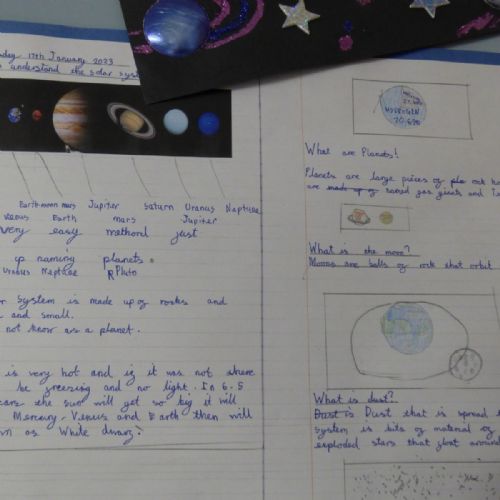 17th January 2023
understand the solar
Earth moon mars Jupiter Saturn Uranus Naptiuse
Venus Earth mars Jupiter
very easy methord just
up naming planets.
Uranus Naptiuse Pluto
System is made up of rocks and
and small.
not know as a planet.
is very hot and if it was not there
be freezing and no light. In 6.5
the sun will get so big it will
Mercury, Venus and Earth then will
as White dwarf.
HYDROGEN
What are Planets?
Planets are large pieces of rock
are made up of gas giants and
What is the moon?
Moons are balls of rock that orbit
What is dust?
Dust is Dust that is spread
System is bits of material of
exploded stars that float around